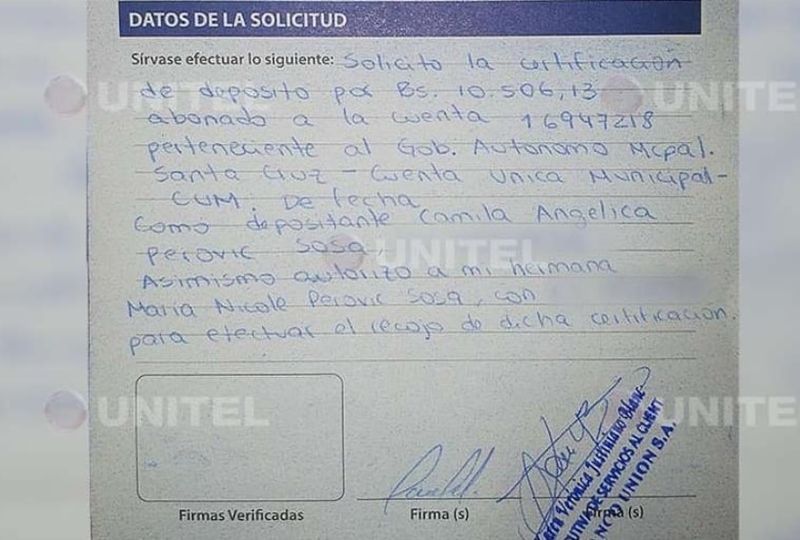 DATOS DE LA SOLICITUD
Sírvase efectuar lo siguiente: Solicito la certificación
de deposito por Bs. 10.506,13
abonado a la cuenta 16947218
perteneciente al Gob. Autonomo Mcpal.
Santa Cruz - Cuenta Unica Municipal-
CUM. De fecha
Como depositante Camila Angelica
Perovic Sosa,
Asimismo autorizo a mi hermana
Maria Nicole Perovic Sosa, con
para efectuar el recojo de dicha certificacion.
UNITEL
UNITEL
UNITEL
UNITEL
UNITEL
Firmas Verificadas
Firma (s)
Firma (s)
Veronica Justiniano
SERVICIOS AL CLIENT
UNION S.A.